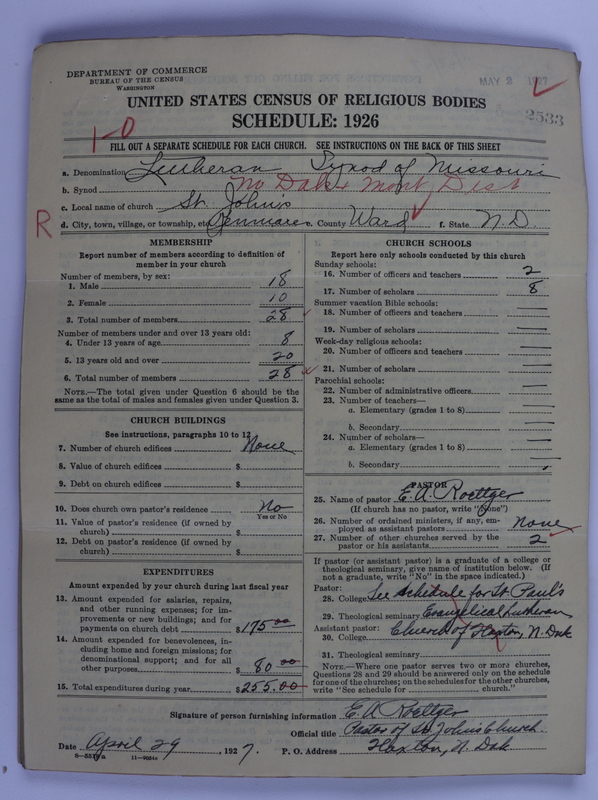 DEPARTMENT OF COMMERCE
BUREAU OF THE CENSUS
WASHINGTON
MAY 2 1927
2533
UNITED STATES CENSUS OF RELIGIOUS BODIES
SCHEDULE: 1926
1-0
FILL OUT A SEPARATE SCHEDULE FOR EACH CHURCH. SEE INSTRUCTIONS ON THE BACK OF THIS SHEET
a. Denomination Lutheran Synod of Missouri
b. Synod No Dak & Mont Dist
c. Local name of church St. John's
R
d. City, town, village, or township, etc. Kenmare e. County Ward f. State N.D.
MEMBERSHIP
Report number of members according to definition of member in your church
Number of members, by sex:
1. Male 18
2. Female 10
3. Total number of members 28
Number of members under and over 13 years old:
4. Under 13 years of age 8
5. 13 years old and over 20
6. Total number of members 28
NOTE.—The total given under Question 6 should be the same as the total of males and females given under Question 3.
CHURCH BUILDINGS
See instructions, paragraphs 10 to 12
7. Number of church edifices None
8. Value of church edifices $
9. Debt on church edifices $
10. Does church own pastor's residence No
Yes or No
11. Value of pastor's residence (if owned by church) $
12. Debt on pastor's residence (if owned by church) $
EXPENDITURES
Amount expended by your church during last fiscal year
13. Amount expended for salaries, repairs, and other running expenses; for improvements or new buildings; and for payments on church debt $175.00
14. Amount expended for benevolences, including home and foreign missions; for denominational support; and for all other purposes $80.00
15. Total expenditures during year $255.00
CHURCH SCHOOLS
Report here only schools conducted by this church
Sunday schools:
16. Number of officers and teachers 2
17. Number of scholars 8
Summer vacation Bible schools:
18. Number of officers and teachers —
19. Number of scholars —
Week-day religious schools:
20. Number of officers and teachers —
21. Number of scholars —
Parochial schools:
22. Number of administrative officers —
23. Number of teachers—
a. Elementary (grades 1 to 8) —
b. Secondary —
24. Number of scholars—
a. Elementary (grades 1 to 8) —
b. Secondary —
PASTOR
25. Name of pastor E. A. Roettger
(If church has no pastor, write "None")
26. Number of ordained ministers, if any, employed as assistant pastors None
27. Number of other churches served by the pastor or his assistants 2
If pastor (or assistant pastor) is a graduate of a college or theological seminary, give name of institution below. (If not a graduate, write "No" in the space indicated.)
Pastor:
28. College See Schedule for St. Paul's
29. Theological seminary Evangelical Lutheran
Assistant pastor:
30. College Church of Flaxton, N. Dak
31. Theological seminary
NOTE.—Where one pastor serves two or more churches, Questions 28 and 29 should be answered only on the schedule for one of the churches; on the schedules for the other churches, write "See schedule for church."
Signature of person furnishing information E. A. Roettger
Official title Pastor of St. John's Church.
Date April 29, 1927. P. O. Address Flaxton, N. Dak